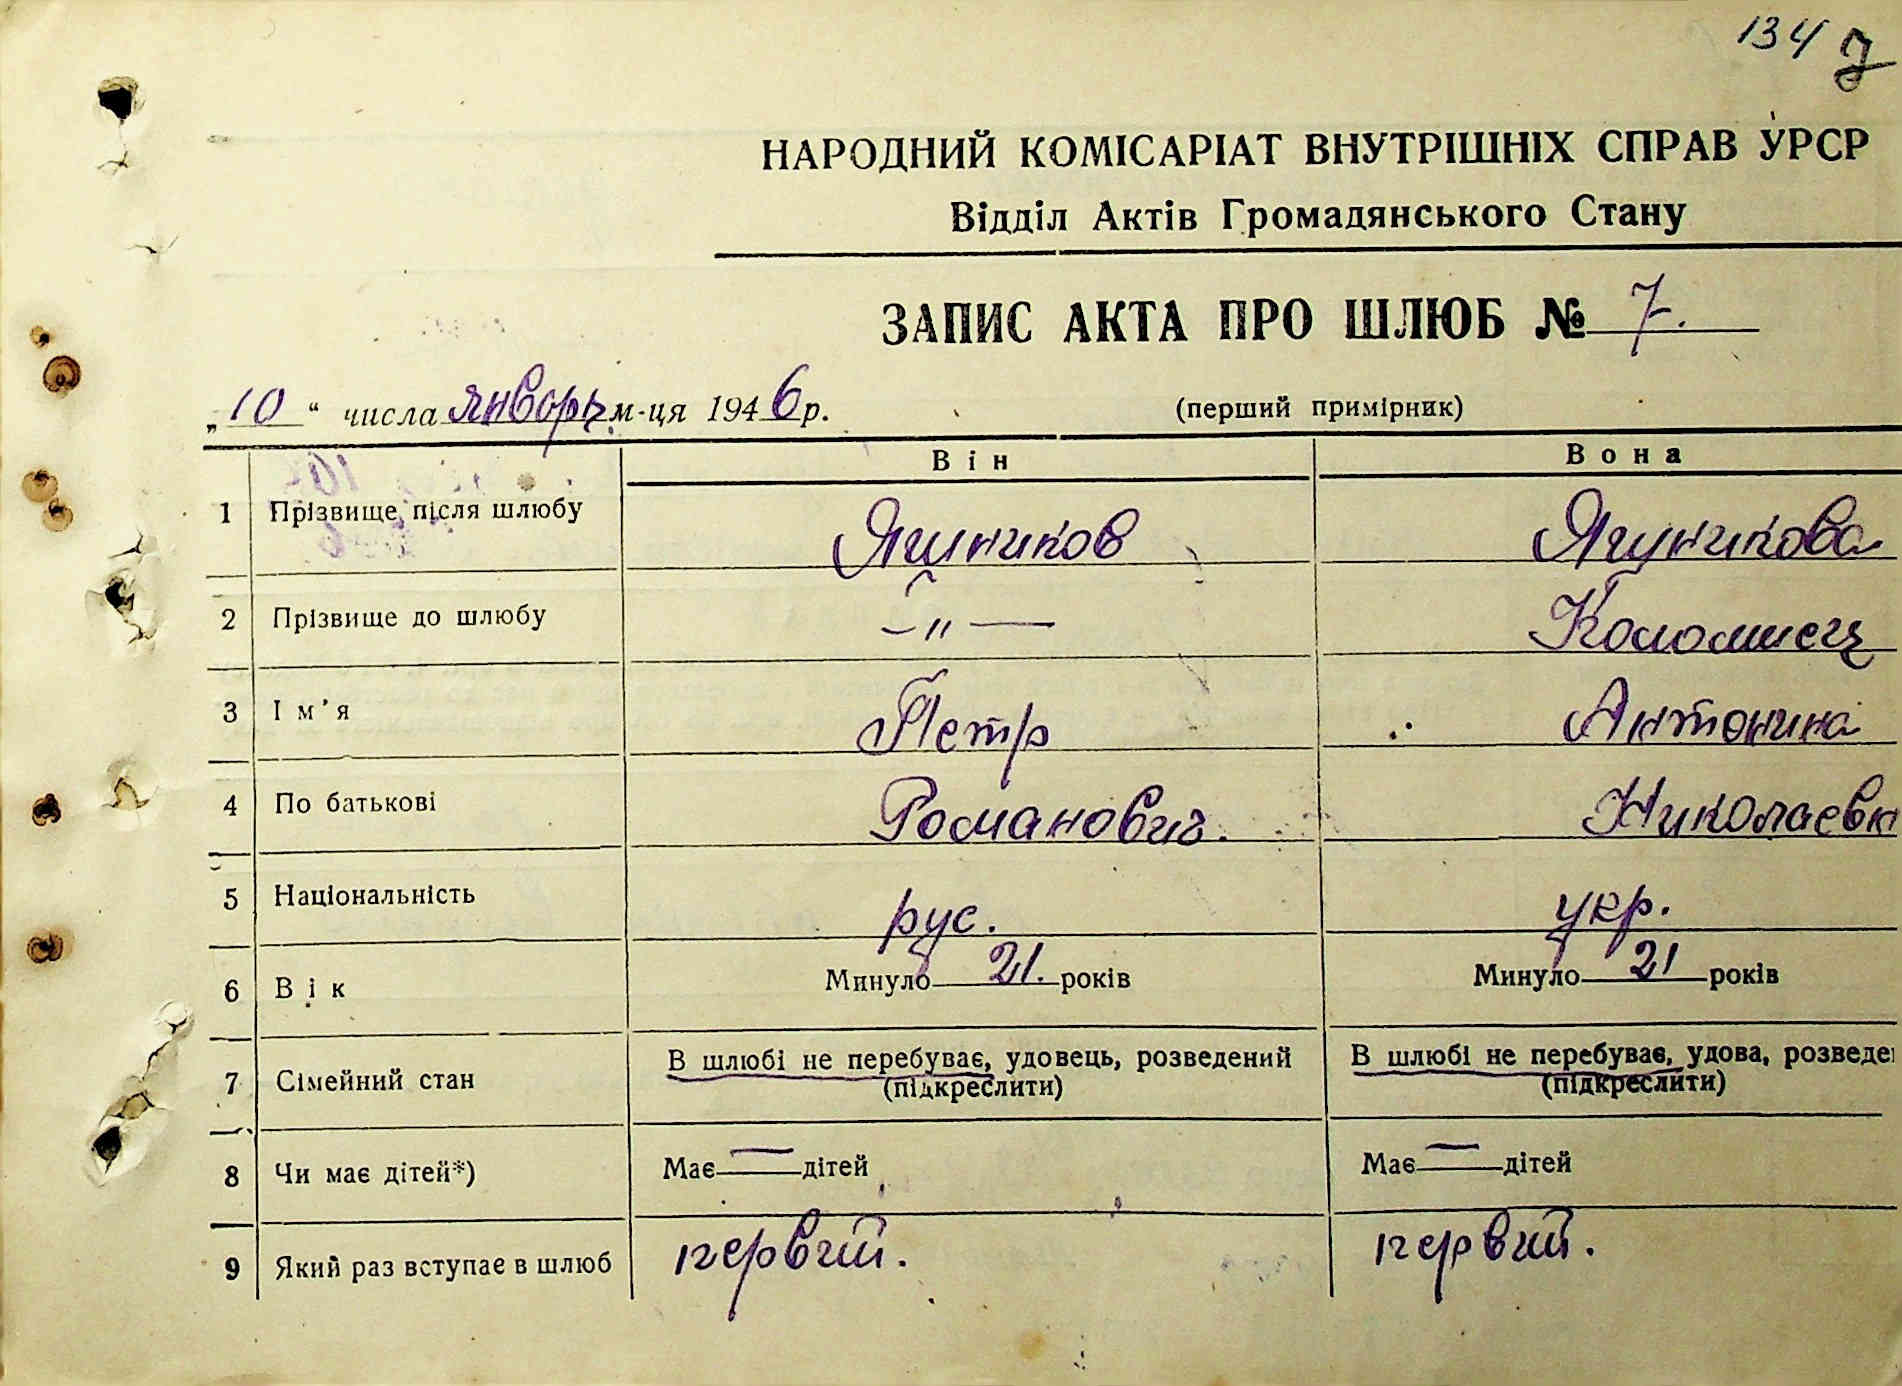 134
НАРОДНИЙ КОМІСАРІАТ ВНУТРІШНІХ СПРАВ УРСР
Відділ Актів Громадянського Стану
ЗАПИС АКТА ПРО ШЛЮБ № 7.
„10“ числа январь м-ця 1946 р.
(перший примірник)
Він Вона
1 Прізвище після шлюбу Ягуников Ягуникова
2 Прізвище до шлюбу —"— Коломиец
3 Ім'я Петр Антонина
4 По батькові Романович. Николаевн
5 Національність рус. укр.
6 Вік Минуло 21. років Минуло 21 років
7 Сімейний стан В шлюбі не перебуває, удовець, розведений В шлюбі не перебуває, удова, розведе
(підкреслити) (підкреслити)
8 Чи має дітей*) Має — дітей Має — дітей
9 Який раз вступає в шлюб первий. первий.